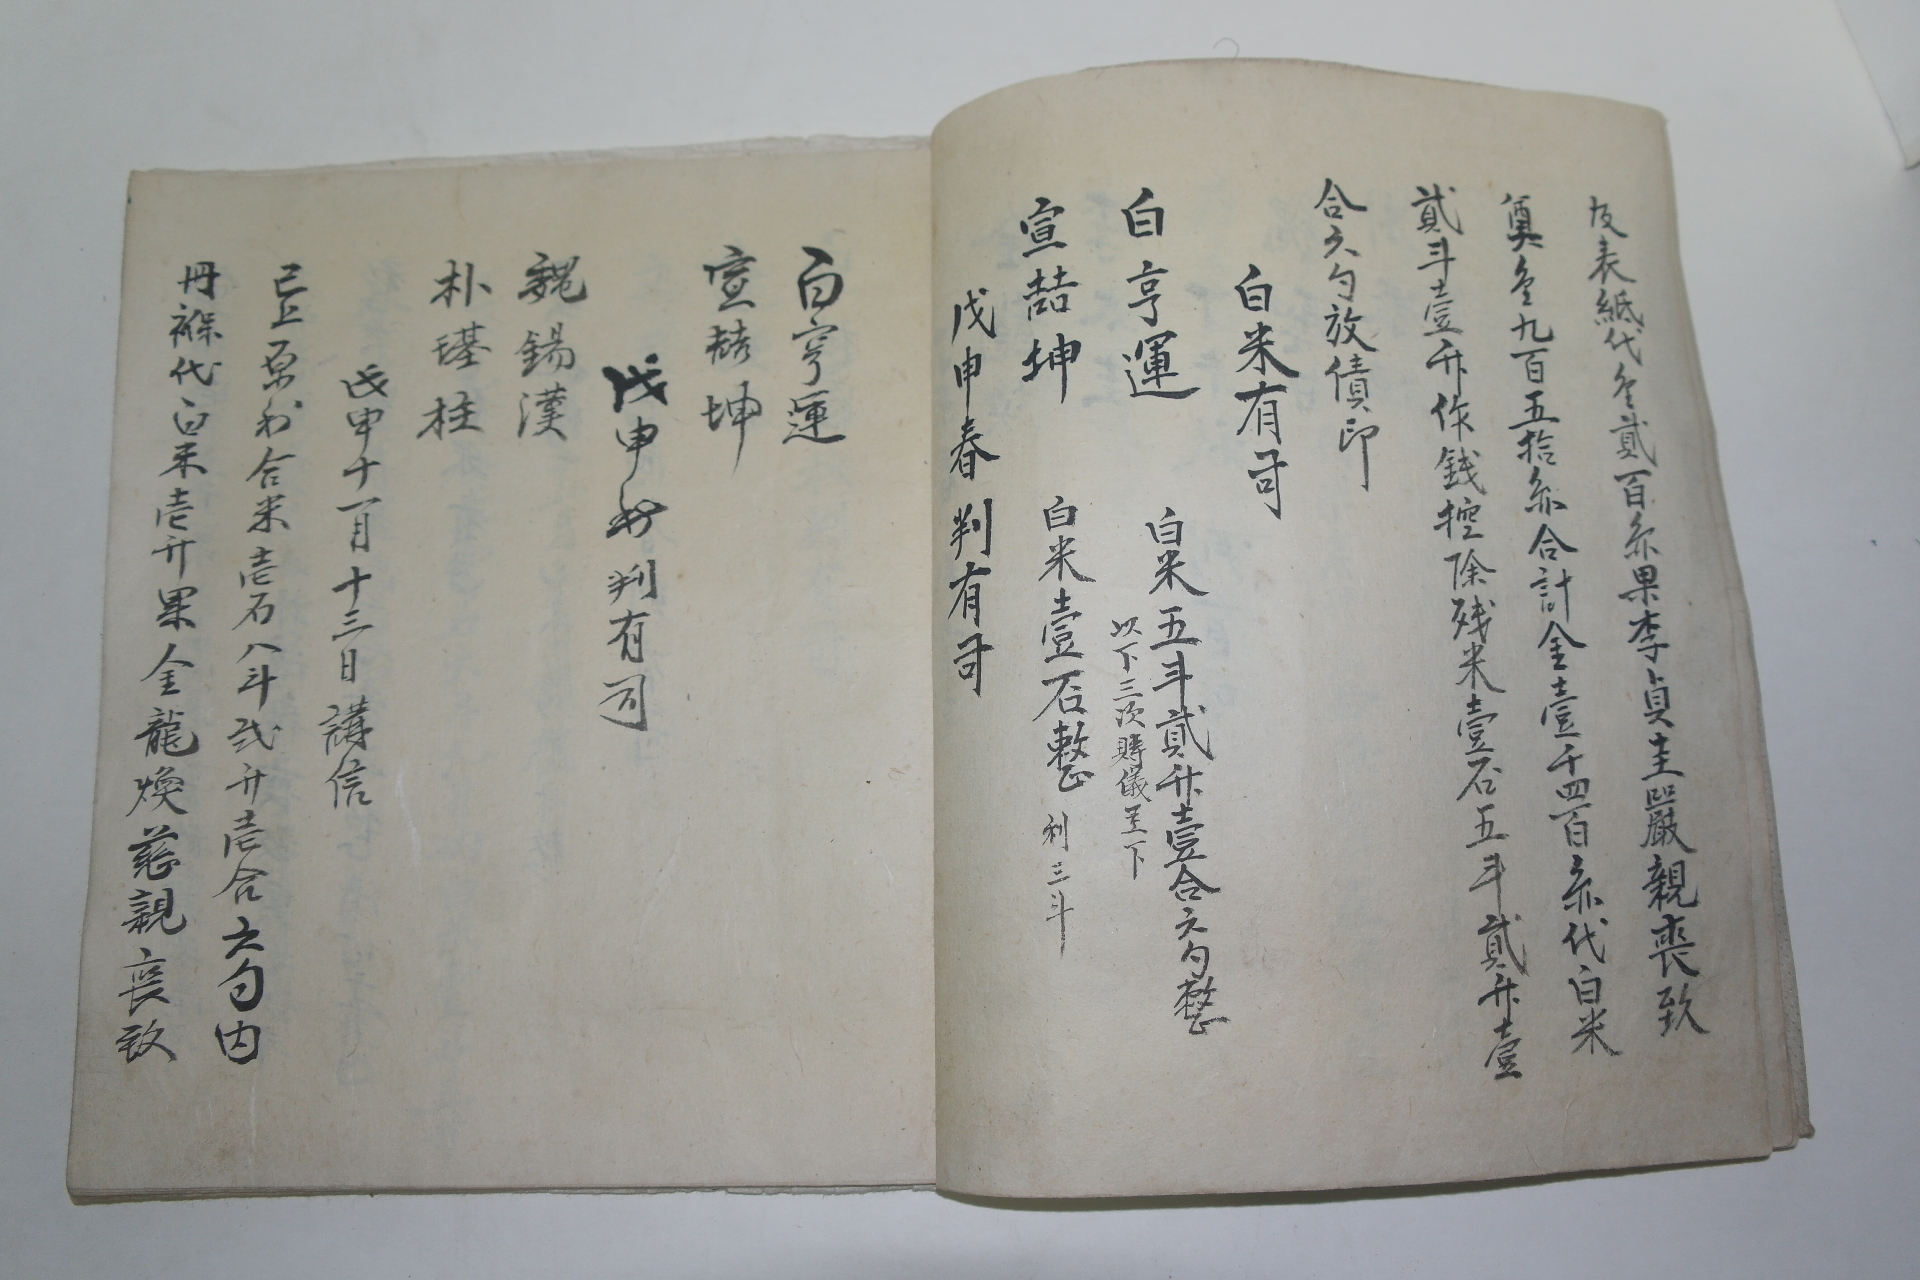 及表紙代金貳百糸果李貞圭嚴親喪致
奠金九百五拾糸合計金壹千四百糸代白米
貳斗壹升作錢控除殘米壹石五斗貳升壹
合六勺放債印
白米有司
白亨運 白米五斗貳升壹合六勺整
以下三次賻儀至下
宣喆坤 白米壹石整 利三斗
戊申春判有司
白亨運
宣喆坤
戊申秋判有司
魏錫漢
朴琪柱
戊申十一月十三日講信
已上原利合米壱石八斗弐升壱合六勺內
冊褓代白米壱升果金龍煥慈親喪致